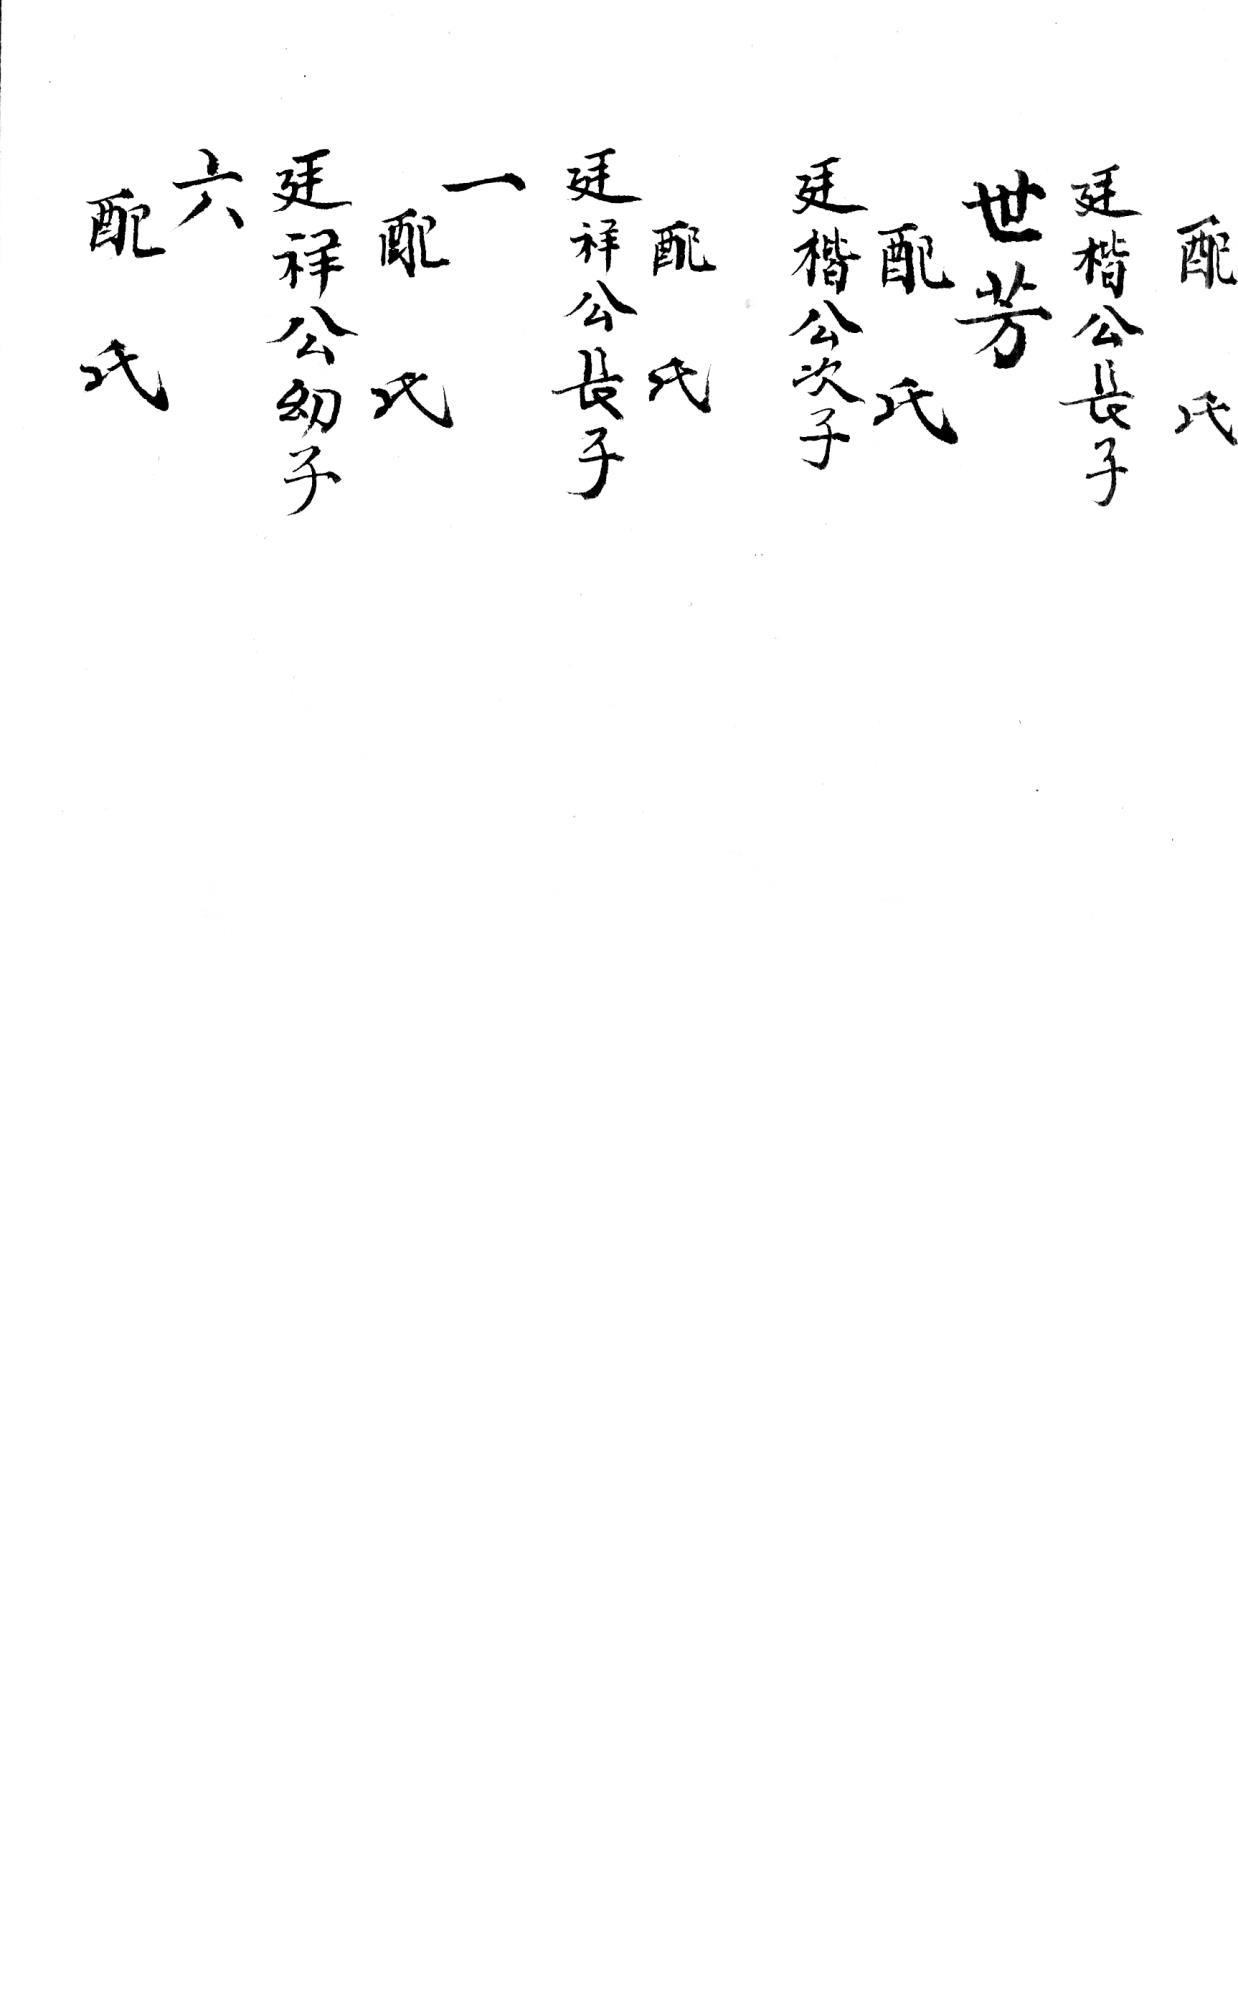 配 氏
廷楷公長子
世芳
配 氏
廷楷公次子
配 氏
廷祥公長子
一
配 氏
廷祥公幼子
六
配 氏